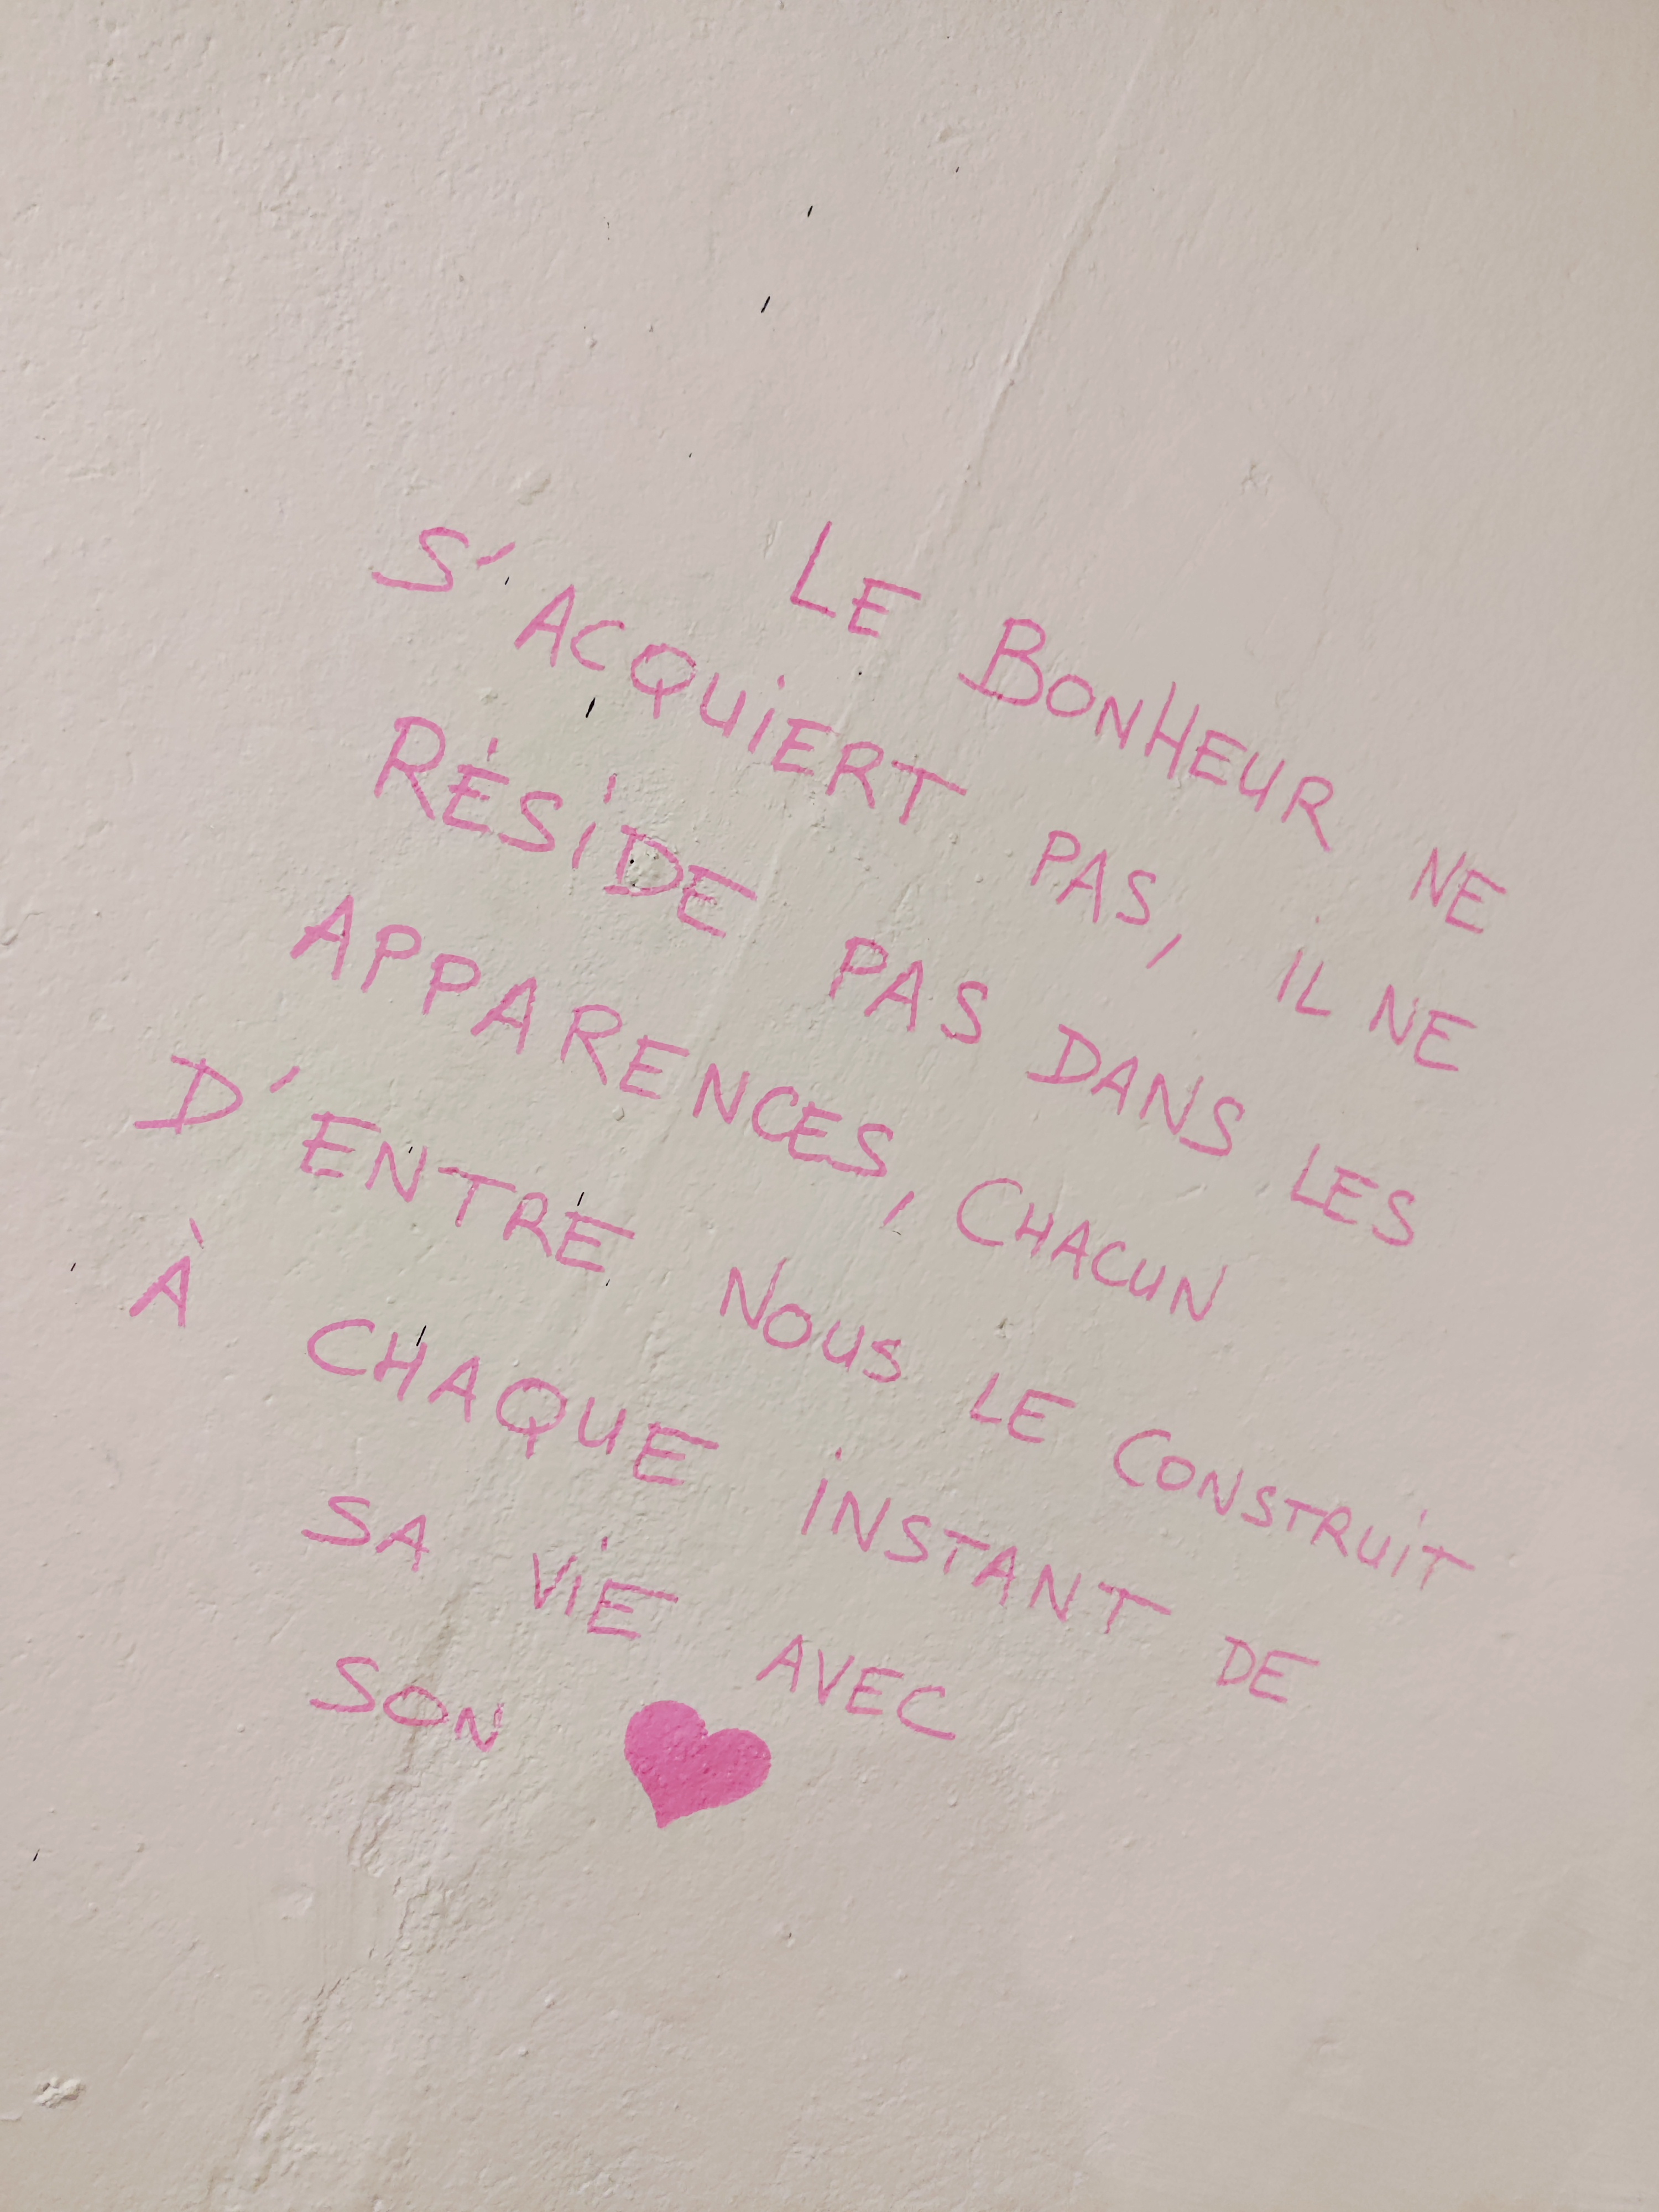 LE BONHEUR NE
S'ACQUIERT PAS, IL NE
RÉSIDE PAS DANS LES
APPARENCES, CHACUN
D'ENTRE NOUS LE CONSTRUIT
À CHAQUE INSTANT DE
SA VIE AVEC
SON ♥